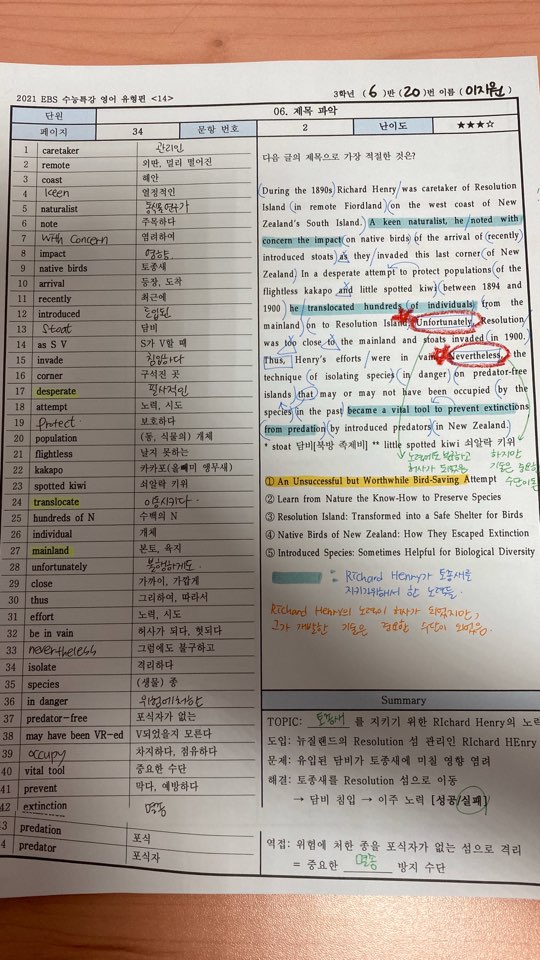 2021 EBS 수능특강 영어 유형편 <14>
3학년 ( 6 )반 ( 20 )번 이름 ( 이지원 )
단원
06. 제목 파악
페이지 34 문항 번호 2 난이도 ★★★☆
1 caretaker 관리인
2 remote 외딴, 멀리 떨어진
3 coast 해안
4 keen 열정적인
5 naturalist 동식물 연구가
6 note 주목하다
7 with concern 염려하여
8 impact 영향
9 native birds 토종새
10 arrival 등장, 도착
11 recently 최근에
12 introduced 도입된
13 stoat 담비
14 as S V S가 V할 때
15 invade 침입하다
16 corner 구석진 곳
17 desperate 필사적인
18 attempt 노력, 시도
19 protect 보호하다
20 population (동, 식물의) 개체
21 flightless 날지 못하는
22 kakapo 카카포(올빼미 앵무새)
23 spotted kiwi 쇠알락 키위
24 translocate 이동시키다
25 hundreds of N 수백의 N
26 individual 개체
27 mainland 본토, 육지
28 unfortunately 불행하게도
29 close 가까이, 가깝게
30 thus 그리하여, 따라서
31 effort 노력, 시도
32 be in vain 허사가 되다, 헛되다
33 nevertheless 그럼에도 불구하고
34 isolate 격리하다
35 species (생물) 종
36 in danger 위험에 처한
37 predator-free 포식자가 없는
38 may have been VR-ed V되었을지 모른다
39 occupy 차지하다, 점유하다
40 vital tool 중요한 수단
41 prevent 막다, 예방하다
42 extinction 멸종
3 predation 포식
4 predator 포식자
다음 글의 제목으로 가장 적절한 것은?
During the 1890s Richard Henry was caretaker of Resolution
Island in remote Fiordland on the west coast of New
Zealand's South Island. A keen naturalist, he noted with
concern the impact on native birds of the arrival of recently
introduced stoats as they invaded this last corner of New
Zealand. In a desperate attempt to protect populations of the
flightless kakapo and little spotted kiwi between 1894 and
1900 he translocated hundreds of individuals from the
mainland on to Resolution Island. Unfortunately, Resolution
was too close to the mainland and stoats invaded in 1900.
Thus, Henry's efforts were in vain. Nevertheless, the
technique of isolating species in danger on predator-free
islands that may or may not have been occupied by the
species in the past became a vital tool to prevent extinctions
from predation by introduced predators in New Zealand.
* stoat 담비[북방 족제비] ** little spotted kiwi 쇠알락 키위
노력에도 불구하고
허사가 되었음
하지만
기술은 중요한
수단이 됨
① An Unsuccessful but Worthwhile Bird-Saving Attempt
② Learn from Nature the Know-How to Preserve Species
③ Resolution Island: Transformed into a Safe Shelter for Birds
④ Native Birds of New Zealand: How They Escaped Extinction
⑤ Introduced Species: Sometimes Helpful for Biological Diversity
: Richard Henry가 토종새를
지키기 위해서 한 노력들.
Richard Henry의 노력이 허사가 되었지만,
그가 개발한 기술은 중요한 수단이 되었음.
Summary
TOPIC: 토종새 를 지키기 위한 RIchard Henry의 노력
도입: 뉴질랜드의 Resolution 섬 관리인 RIchard HEnry
문제: 유입된 담비가 토종새에 미칠 영향 염려
해결: 토종새를 Resolution 섬으로 이동
→ 담비 침입 → 이주 노력 [성공/실패]
역접: 위험에 처한 종을 포식자가 없는 섬으로 격리
= 중요한 멸종 방지 수단